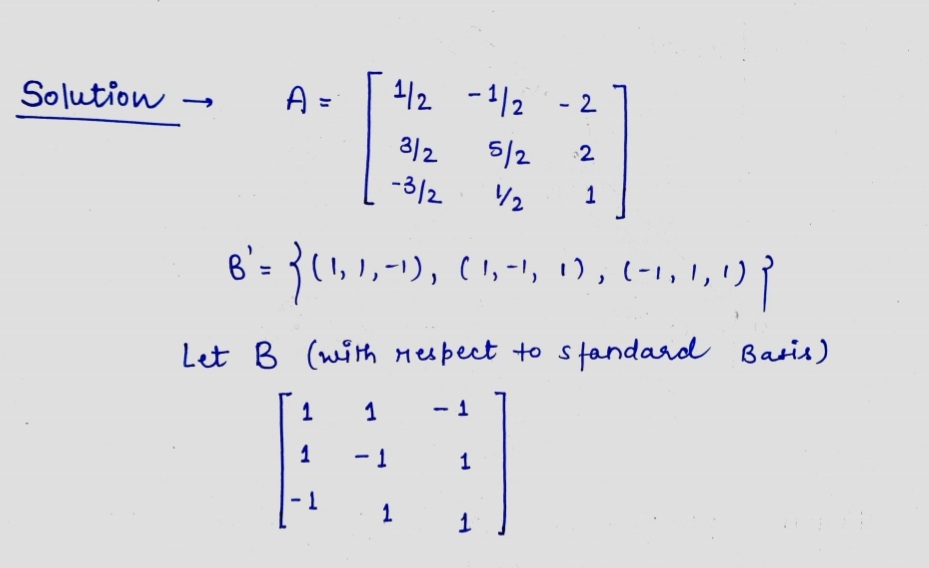 Solution → A = [ 1/2 -1/2 -2
3/2 5/2 2
-3/2 1/2 1 ]
B' = {(1, 1, -1), (1, -1, 1), (-1, 1, 1)}
Let B (with respect to standard Basis)
[ 1 1 -1
1 -1 1
-1 1 1 ]